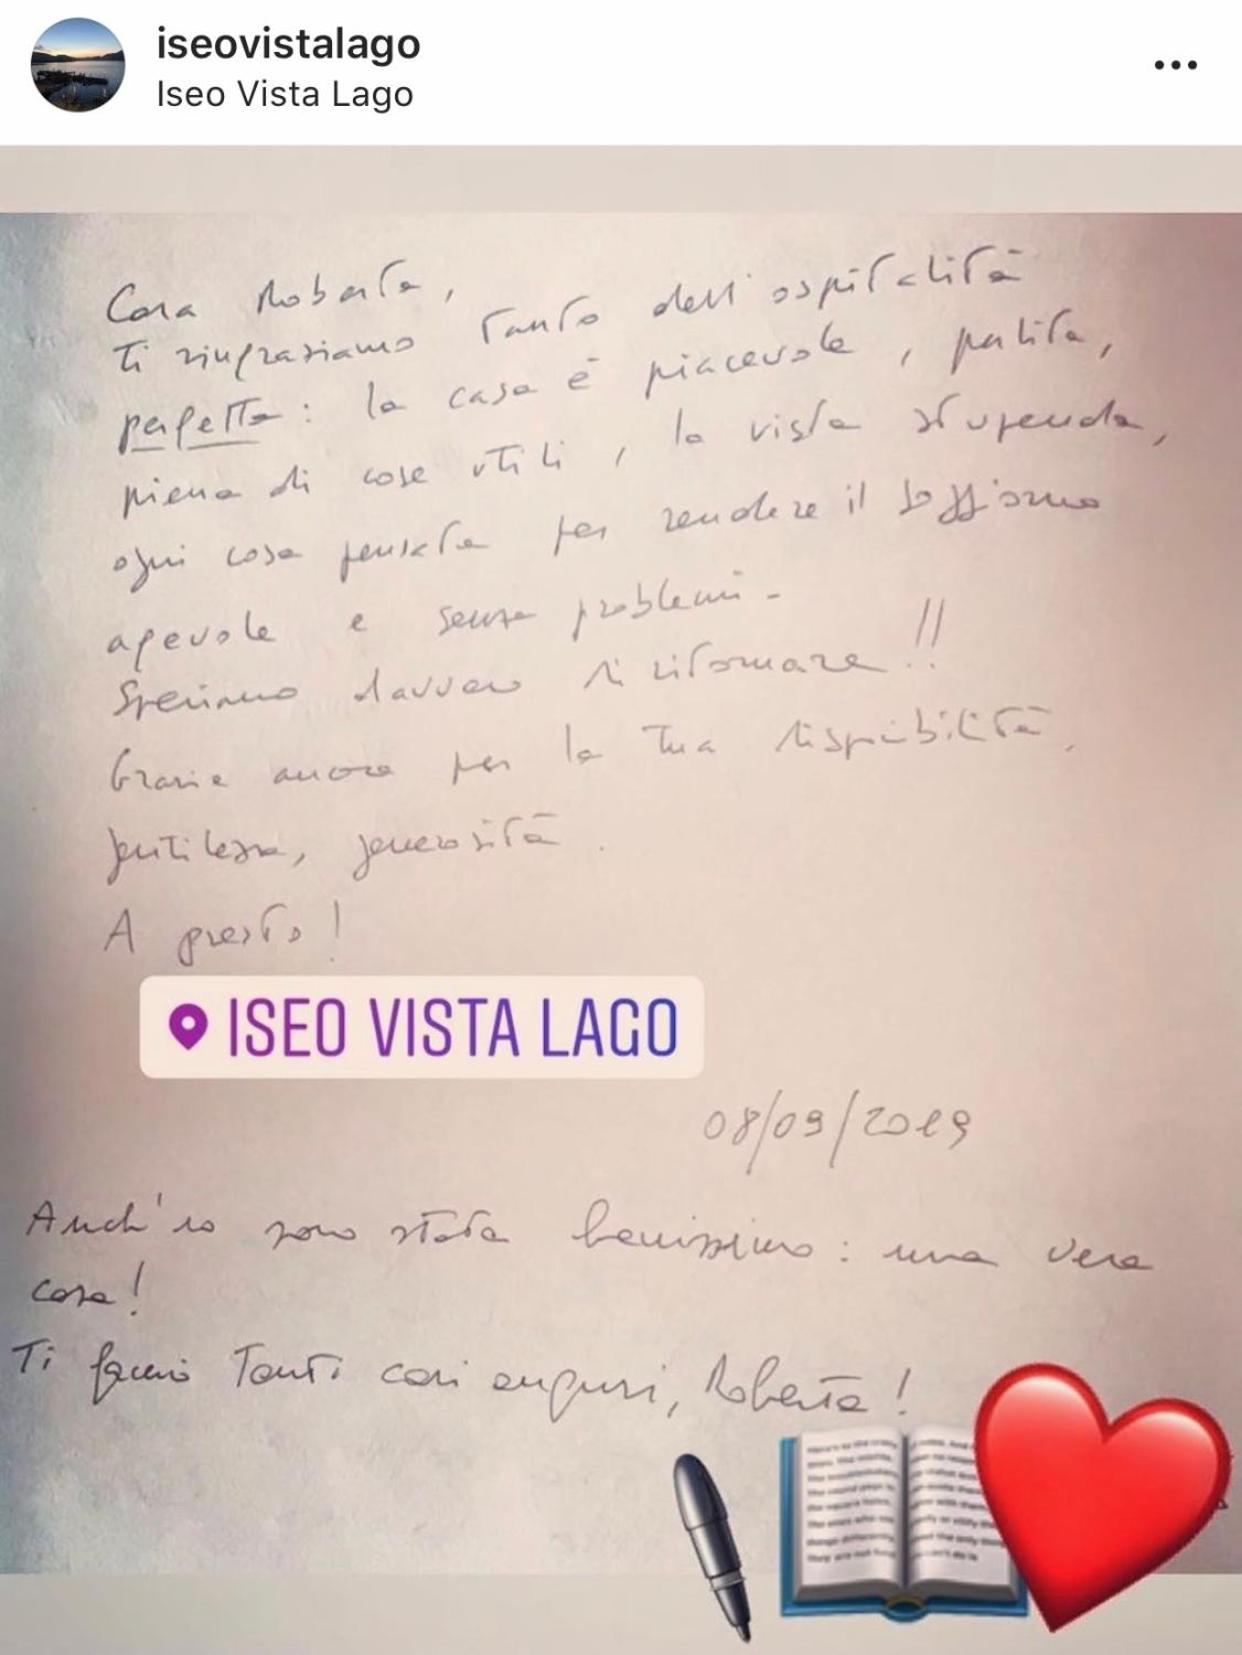 iseovistalago
Iseo Vista Lago
Cara Roberta,
Ti ringraziamo tanto dell'ospitalità
perfetta: la casa è piacevole, pulita,
piena di cose utili, la vista stupenda,
ogni cosa pensata per rendere il soggiorno
agevole e senza problemi -
Speriamo davvero di ritornare!!
Grazie ancora per la tua dispnibilità,
gentilezza, generosità.
A presto!
ISEO VISTA LAGO
08/09/2019
Anch'io sono stata benissimo: una vera
casa!
Ti faccio Tanti cari auguri, Roberta!